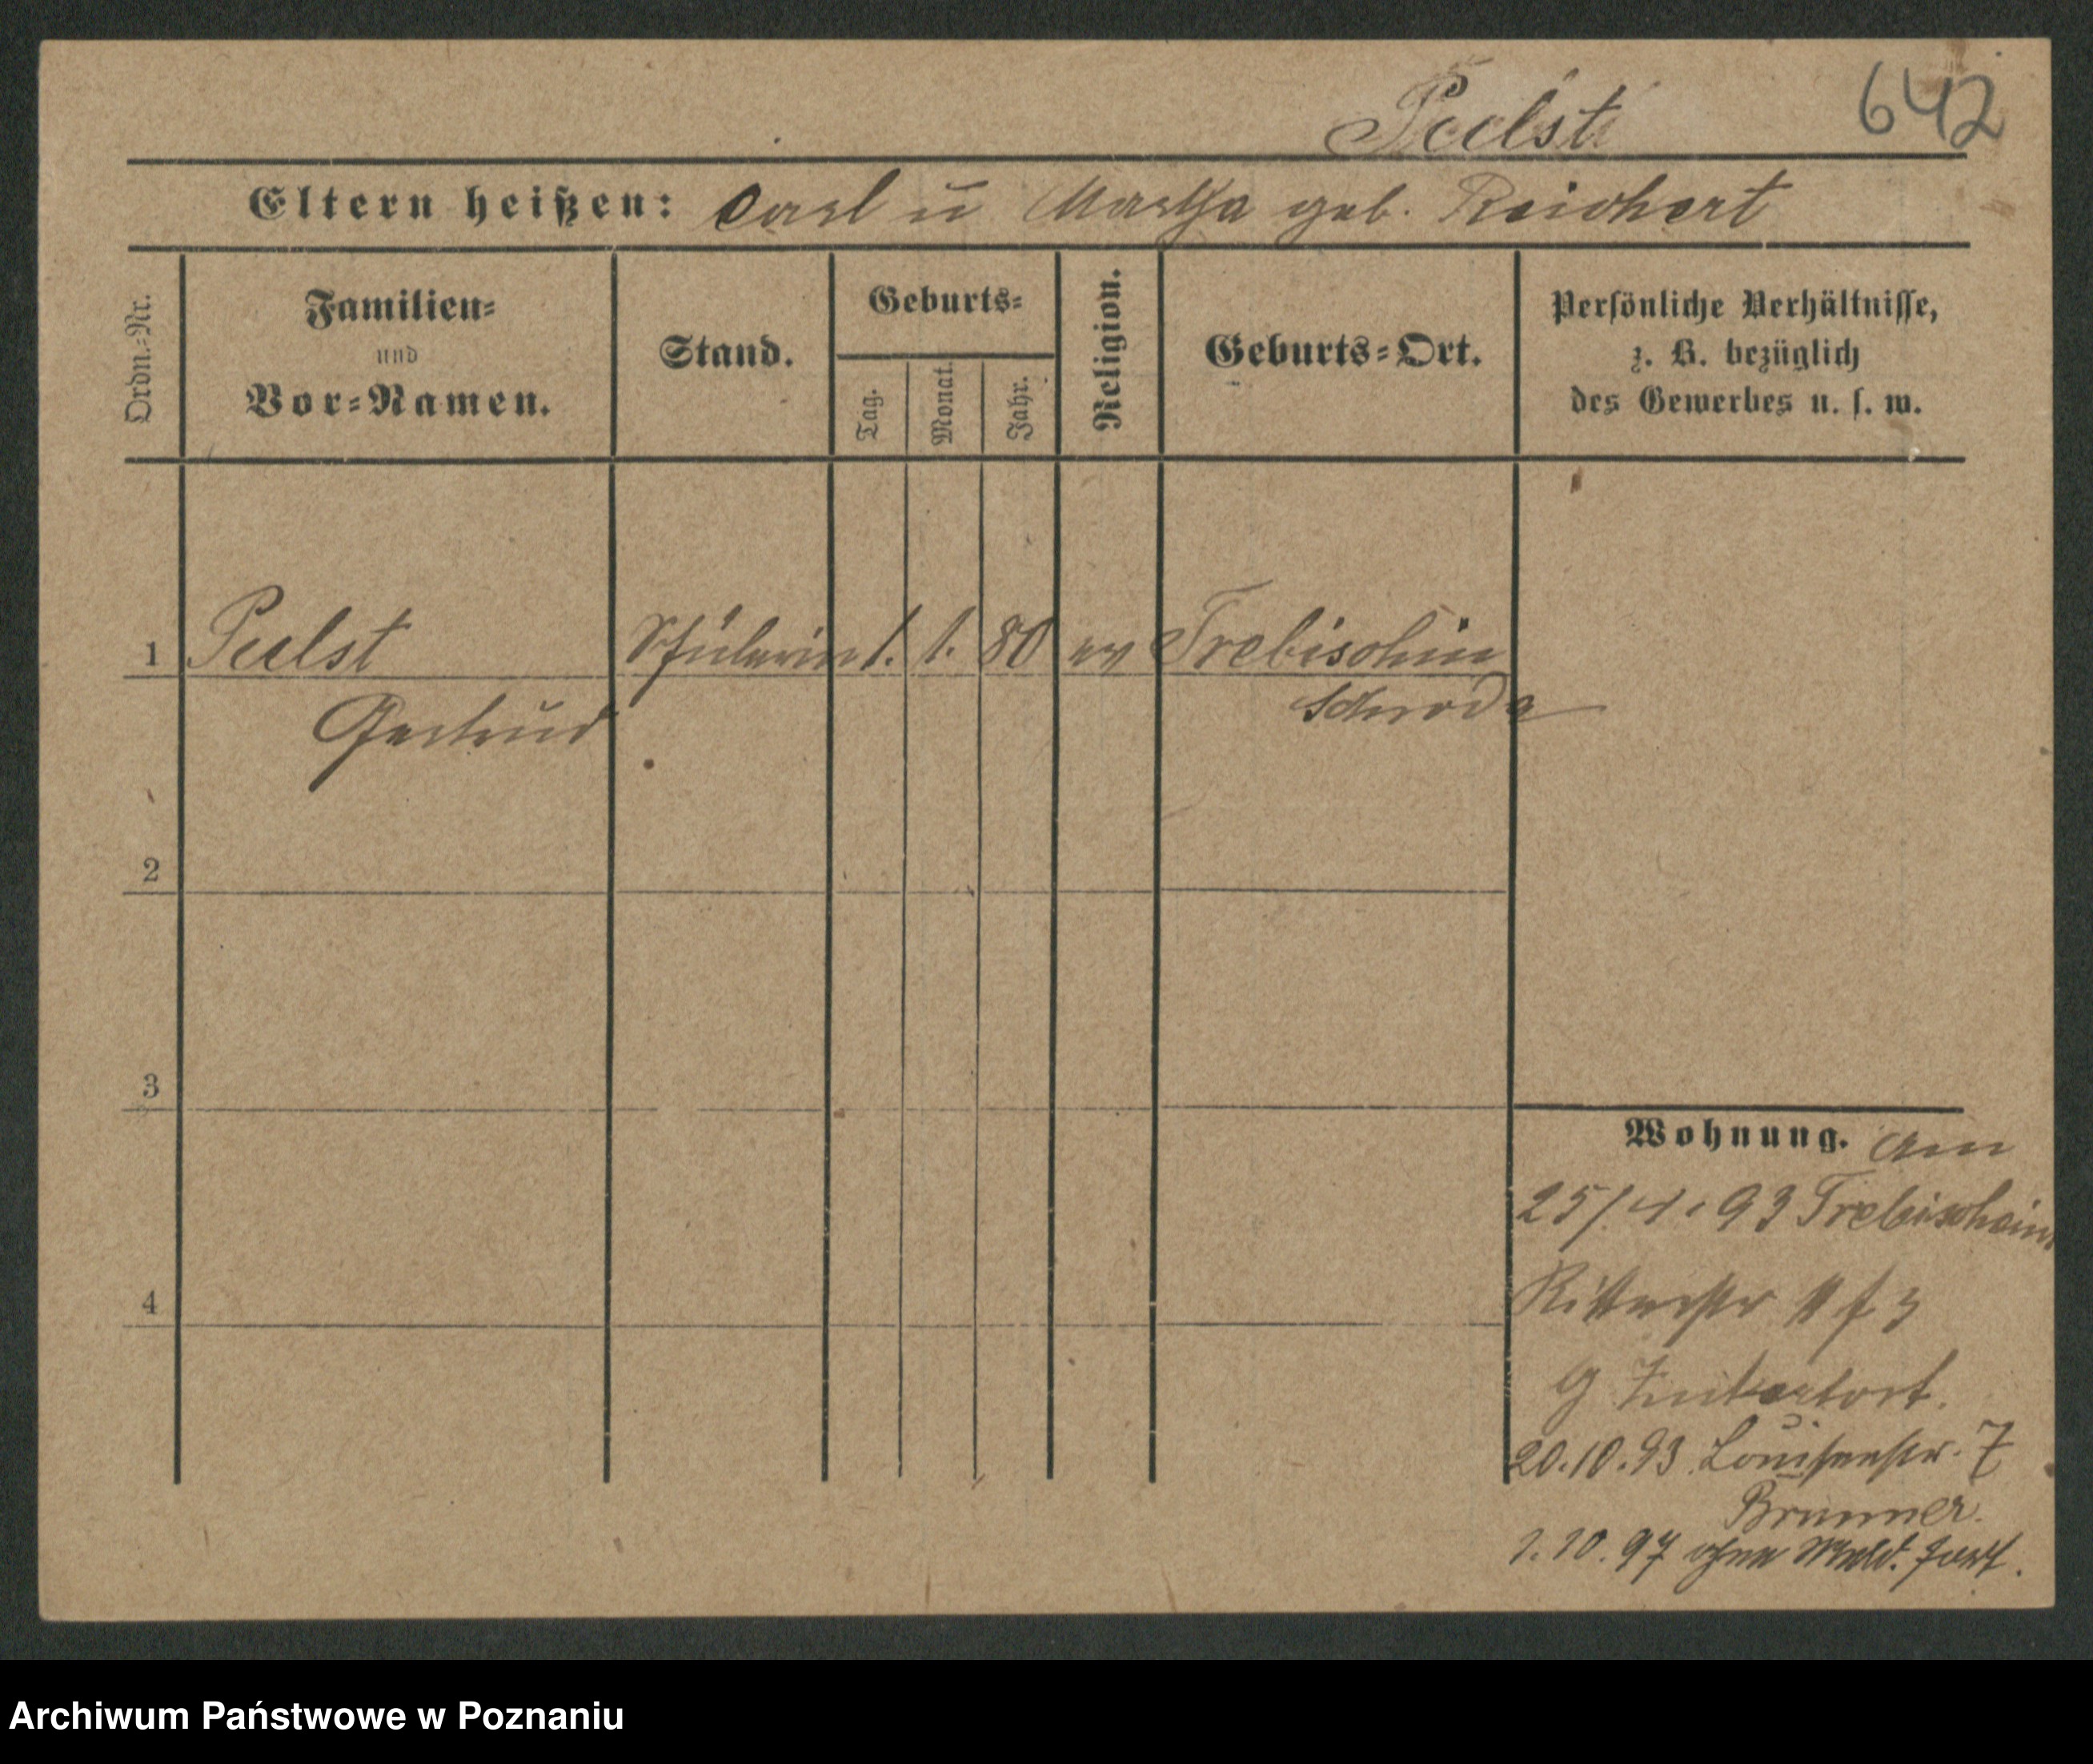 Peelst
642
Eltern heißen: Carl u Martha geb. Reichert
Ordn.-Nr.
Familien-
und
Vor-Namen.
Stand.
Geburts-
Tag.
Monat.
Jahr.
Religion.
Geburts-Ort.
Persönliche Verhältnisse,
z. B. bezüglich
des Gewerbes u. s. w.
1 Peelst Schülerin 1. 1. 80 ev Trebischin
Gertrud Schroda
2
3
4
Wohnung. am
25/4. 93 Trebischain
Ritterstr
20.10.93 Louisenstr. 7
Brunner.
1.10.97 ohne Meld. fort.
Archiwum Państwowe w Poznaniu